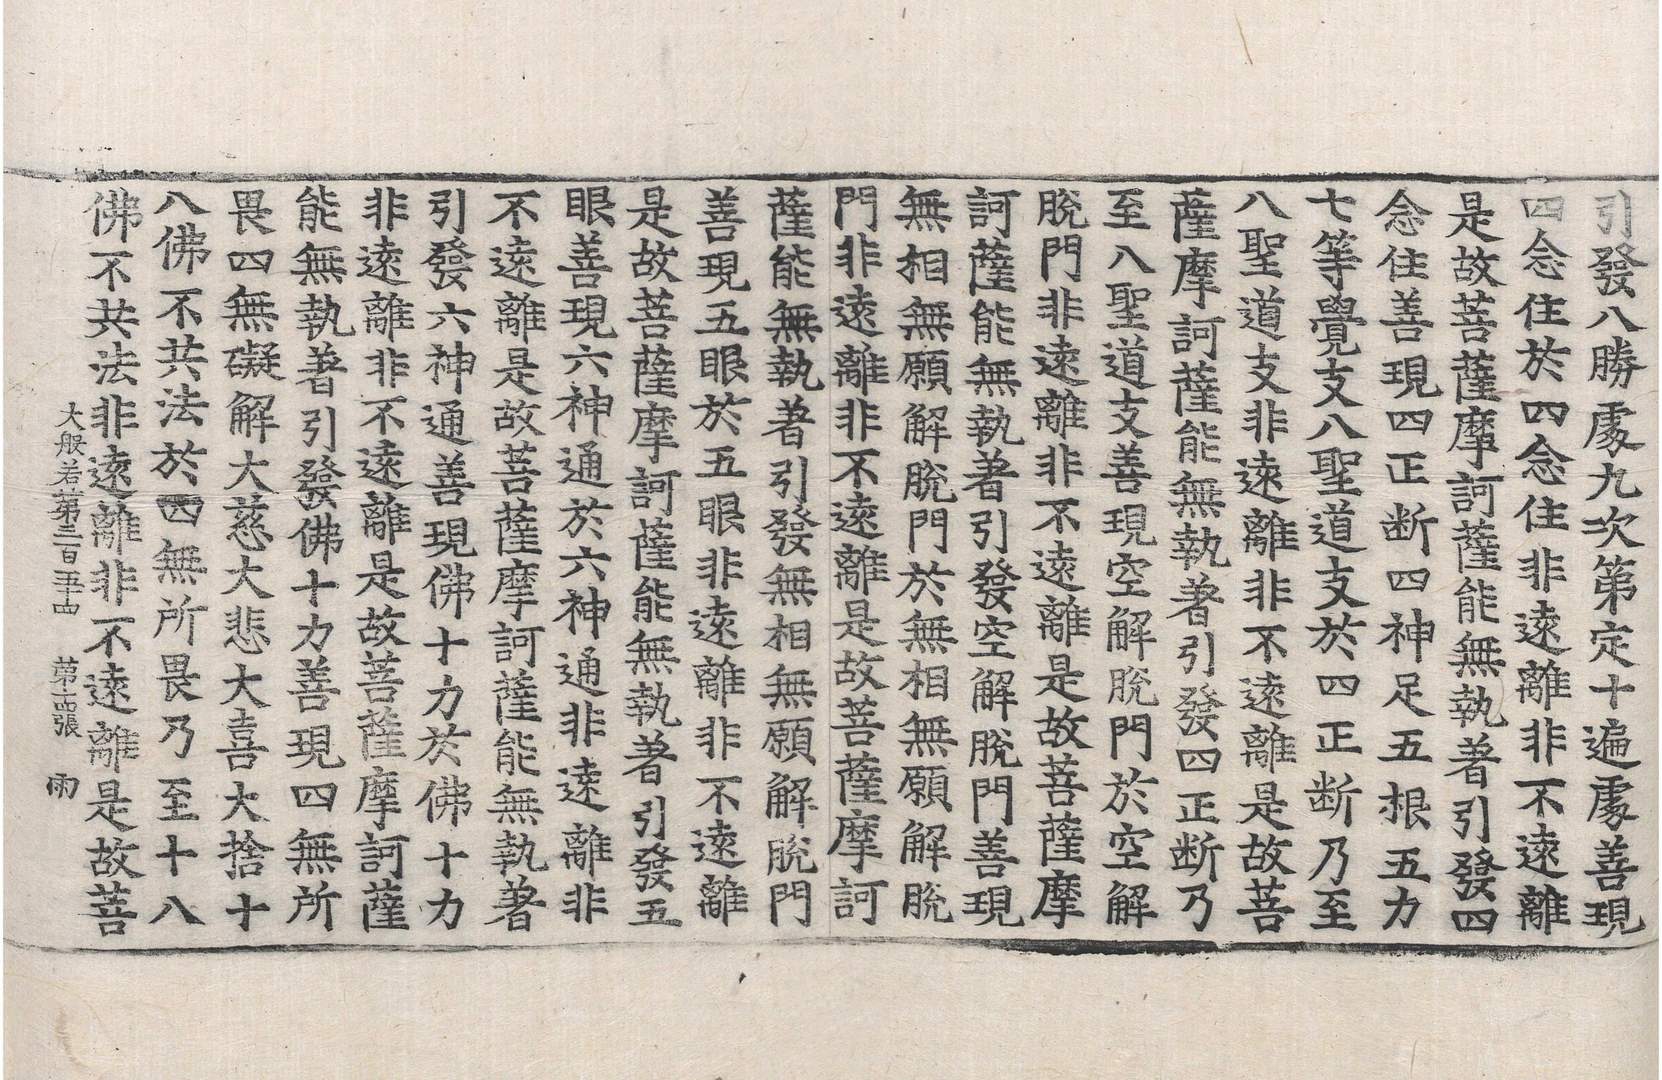 引發八勝處九次第定十遍處善現
四念住於四念住非遠離非不遠離
是故菩薩摩訶薩能無執著引發四
念住善現四正断四神足五根五力
七等覺支八聖道支於四正断乃至
八聖道支非遠離非不遠離是故菩
薩摩訶薩能無執著引發四正断乃
至八聖道支善現空解脫門於空解
脫門非遠離非不遠離是故菩薩摩
訶薩能無執著引發空解脫門善現
無相無願解脫門於無相無願解脫
門非遠離非不遠離是故菩薩摩訶
薩能無執著引發無相無願解脫門
善現五眼於五眼非遠離非不遠離
是故菩薩摩訶薩能無執著引發五
眼善現六神通於六神通非遠離非
不遠離是故菩薩摩訶薩能無執著
引發六神通善現佛十力於佛十力
非遠離非不遠離是故菩薩摩訶薩
能無執著引發佛十力善現四無所
畏四無礙解大慈大悲大喜大捨十
八佛不共法於四無所畏乃至十八
佛不共法非遠離非不遠離是故菩
大般若第三百五十四 第十四張 雨